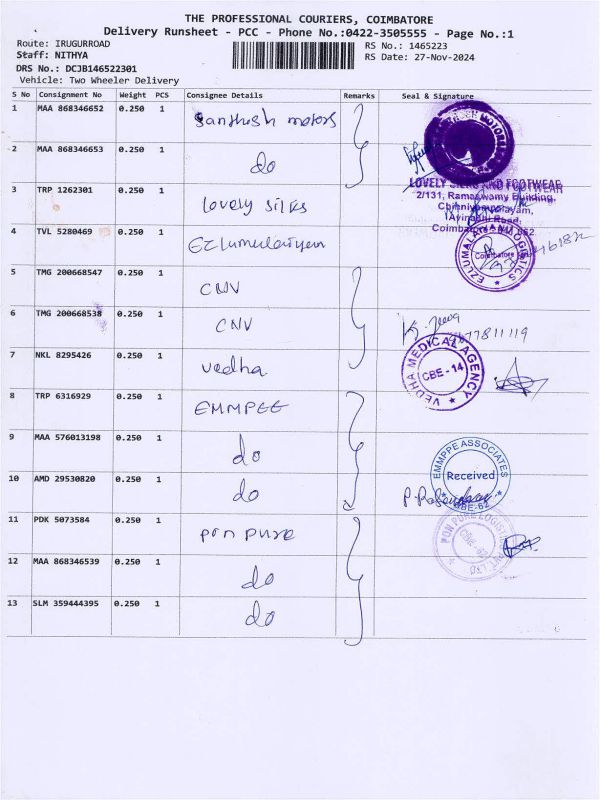 THE PROFESSIONAL COURIERS, COIMBATORE
Delivery Runsheet - PCC - Phone No.:0422-3505555 - Page No.:1
Route: IRUGURROAD RS No.: 1465223
Staff: NITHYA RS Date: 27-Nov-2024
DRS No.: DCJB146522301
Vehicle: Two Wheeler Delivery
S No Consignment No Weight PCS Consignee Details Remarks Seal & Signature
1 MAA 868346652 0.250 1 Santhosh motors
2 MAA 868346653 0.250 1 do
3 TRP 1262301 0.250 1 lovely silks
LOVELY SILKS AND FOOTWEAR
2/131, Ramaswamy Building,
Chinniyampalayam,
Avinashi Road,
Coimbatore - 641 062
4 TVL 5280469 0.250 1 Ezlumalaiyan
EZLUMALAIYAN LOGISTICS
Coimbatore
5 TMG 200668547 0.250 1 CNV
6 TMG 200668538 0.250 1 CNV
7 NKL 8295426 0.250 1 vedha
VEDHA MEDICAL AGENCY
CBE - 14
8 TRP 6316929 0.250 1 EMMPEE
9 MAA 576013198 0.250 1 do
EMMPPE ASSOCIATES
Received
CBE-62
10 AMD 29530820 0.250 1 do
11 PDK 5073584 0.250 1 pon pure
PON PURE LOGISTICS PVT. LTD
CBE-62
12 MAA 868346539 0.250 1 do
13 SLM 359444395 0.250 1 do